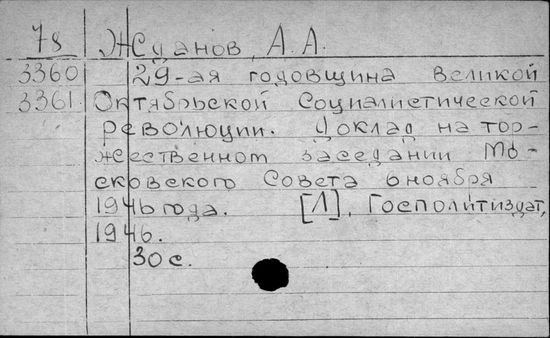 78 Жданов, А. А.
3360 29-ая годовщина Великой
3361. Октябрьской Социалистической
революции. Доклад на тор-
жественном заседании Мо-
сковского Совета 6 ноября
1946 года. [Л], Госполитиздат,
1946.
30 с.